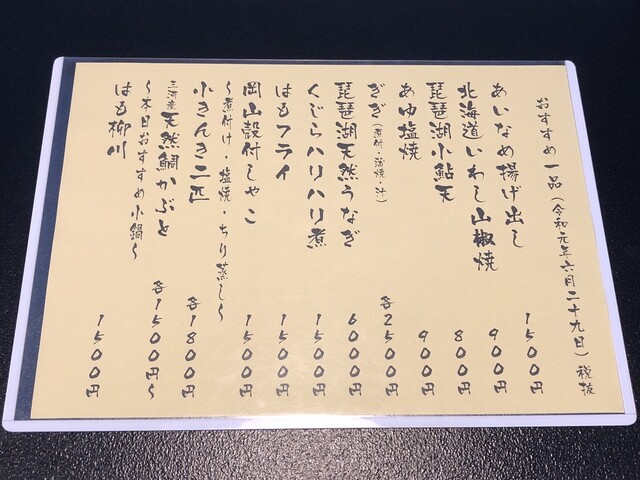 おすすめ一品(令和元年六月二十九日)税抜
あいなめ揚げ出し 1500円
北海道いわし山椒焼 900円
琵琶湖小鮎天 800円
あゆ塩焼 900円
ぎぎ(煮付・蒲焼・汁) 各2500円
琵琶湖天然うなぎ 6000円
くじらハリハリ煮 1500円
はもフライ 1500円
岡山殻付しゃこ 1500円
~煮付け・塩焼・ちり蒸し~
小きんき二匹 各1800円
三河産天然鯛かぶと 各1500円~
~本日おすすめ小鍋~
はも柳川 1500円